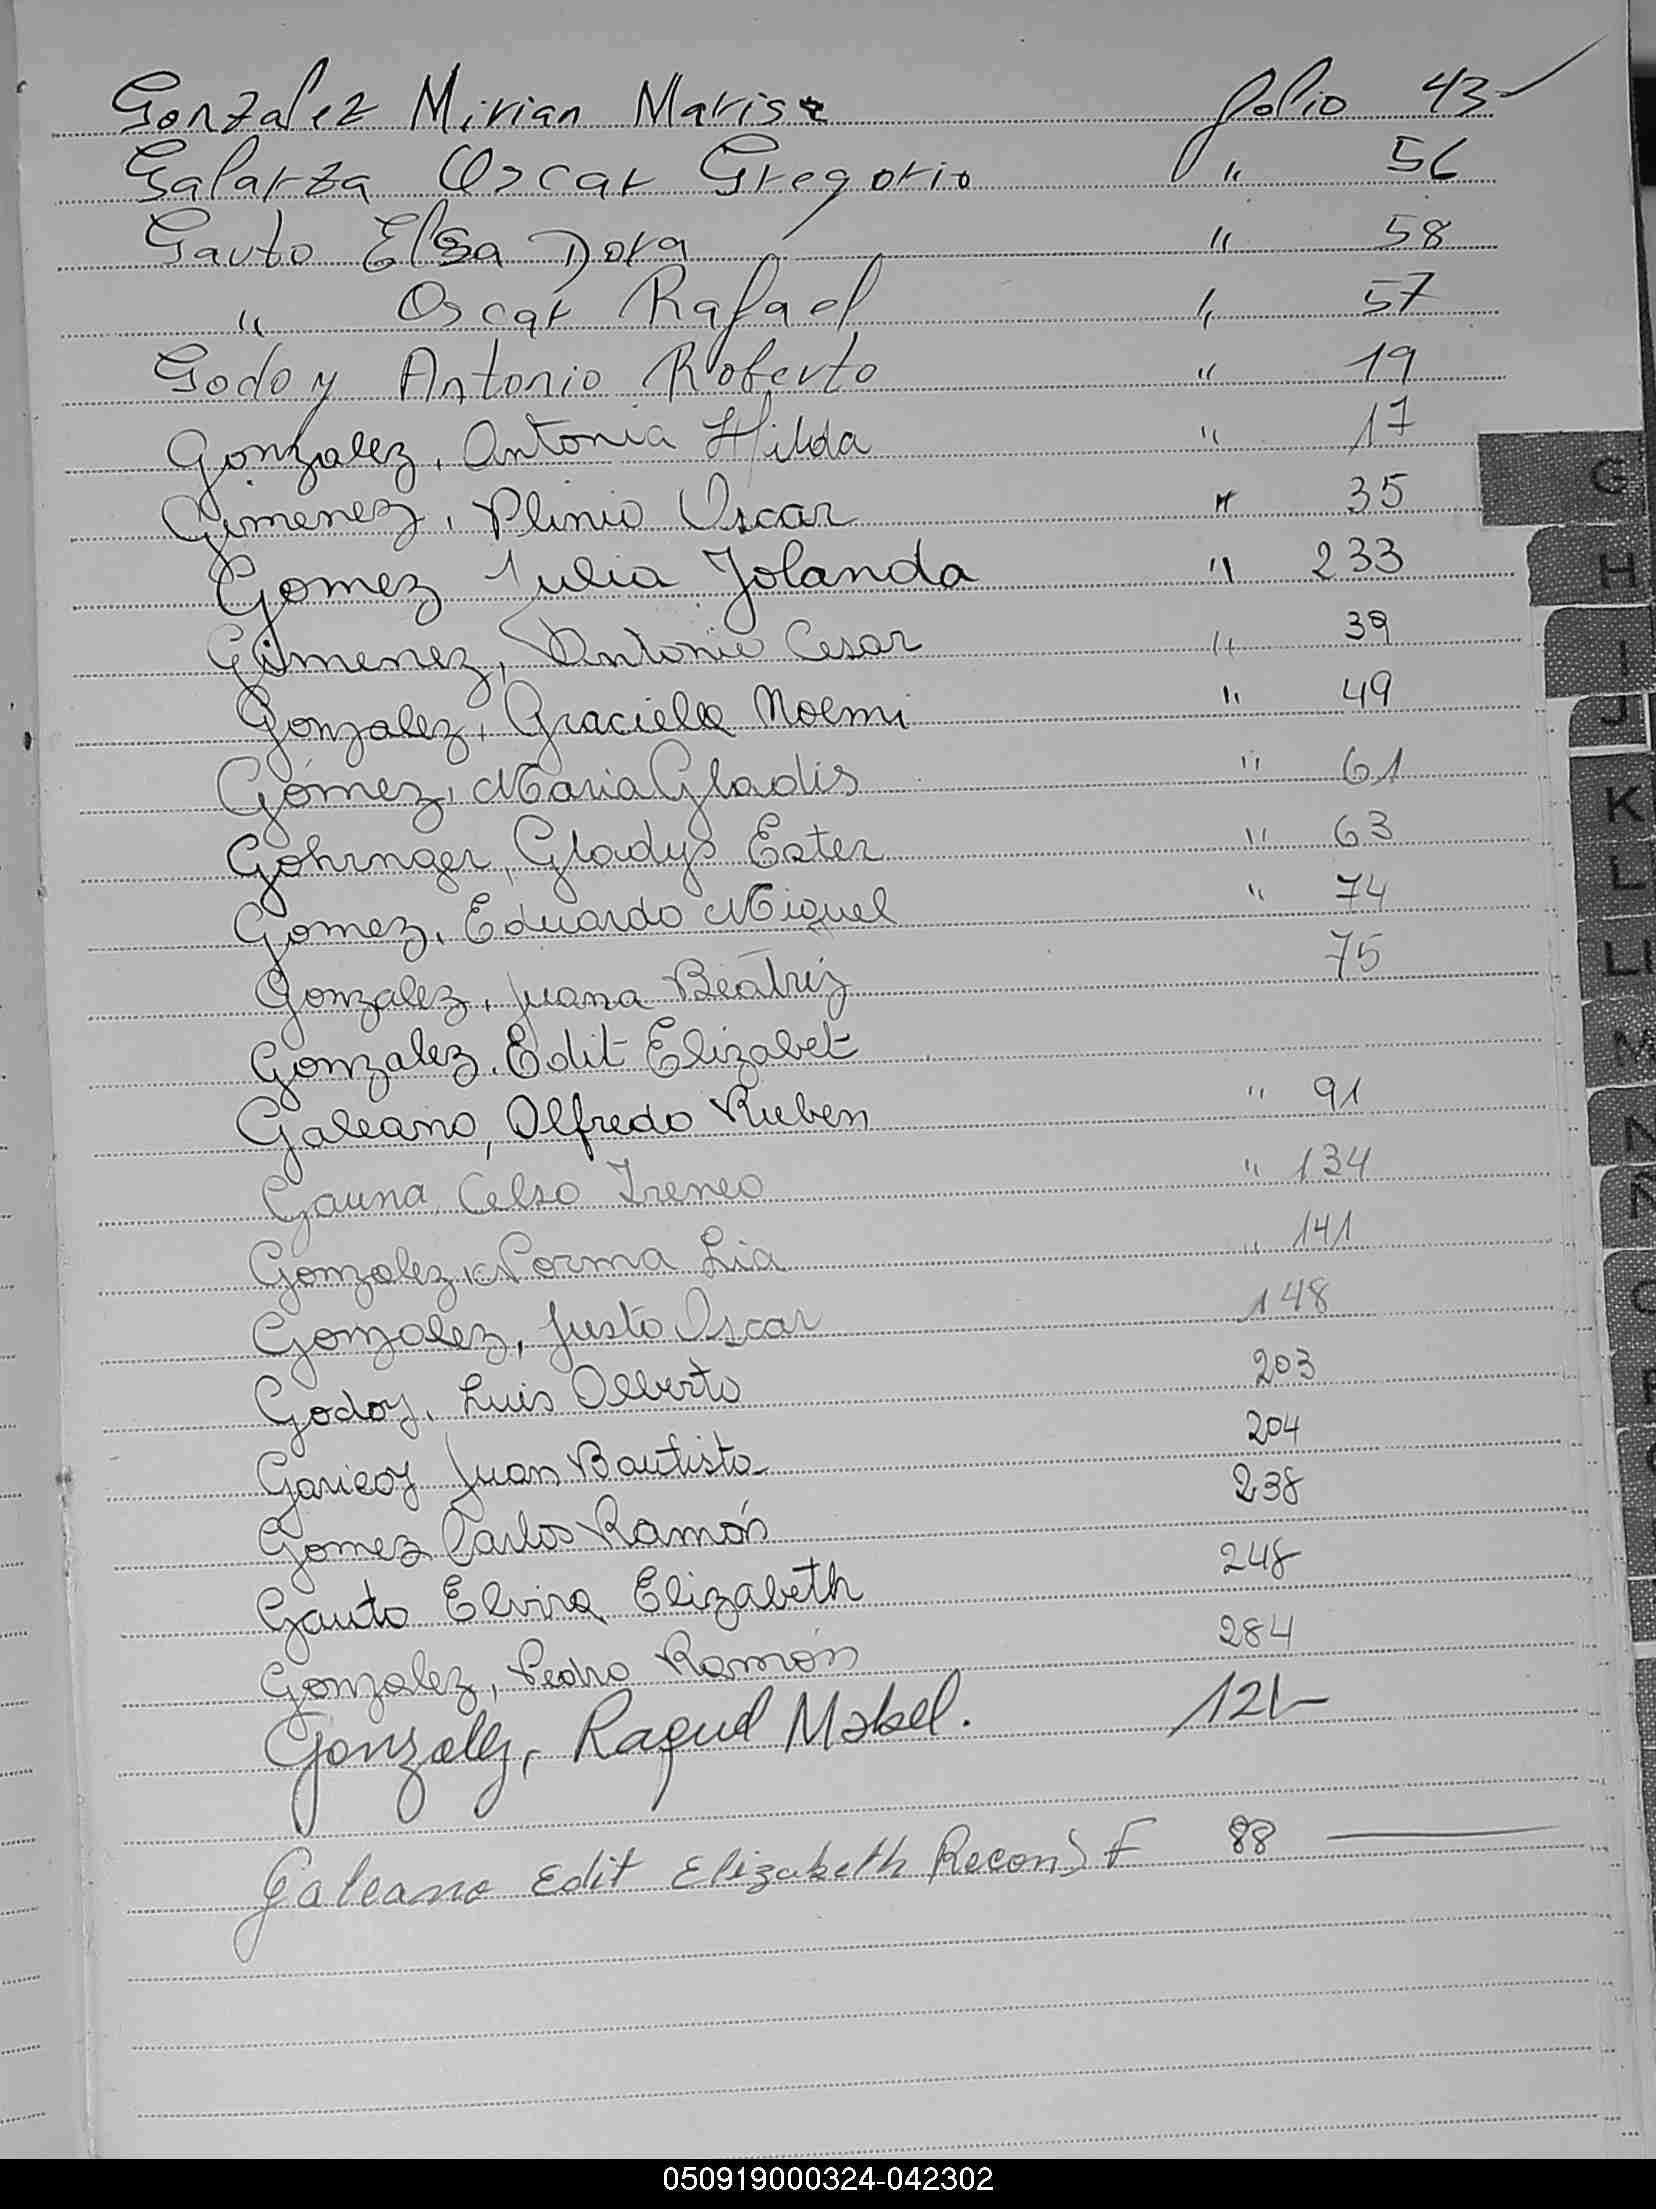 Gonzalez Mirian Marisa folio 43
Galarza Oscar Gregorio " 56
Gauto Elsa Dora " 58
" Oscar Rafael " 57
Godoy Antonio Roberto " 19
Gonzalez, Antonia Hilda " 17
Gimenez, Plinio Oscar " 35
Gomez Julia Jolanda " 233
Gimenez, Antonio Cesar " 39
Gonzalez, Graciela Noemi " 49
Gómez, Maria Gladis " 61
Gohringer, Gladys Ester " 63
Gomez, Eduardo Miguel " 74
Gonzalez, Juana Beatriz 75
Gonzalez, Edit Elizabet
Galeano, Alfredo Ruben " 91
Gauna, Celso Ireneo " 134
Gonzalez, Norma Lia " 141
Gonzalez, Justo Oscar 148
Godoy, Luis Alberto 203
Garicoy Juan Bautista 204
Gomez Carlos Ramón 238
Gauto Elvira Elizabeth 248
Gonzalez, Pedro Ramón 284
Gonzalez, Raquel Mabel. 121
Galeano Edit Elizabeth Recon) F 88
G
H
I
J
K
L
Ll
M
N
Ñ
050919000324-042302